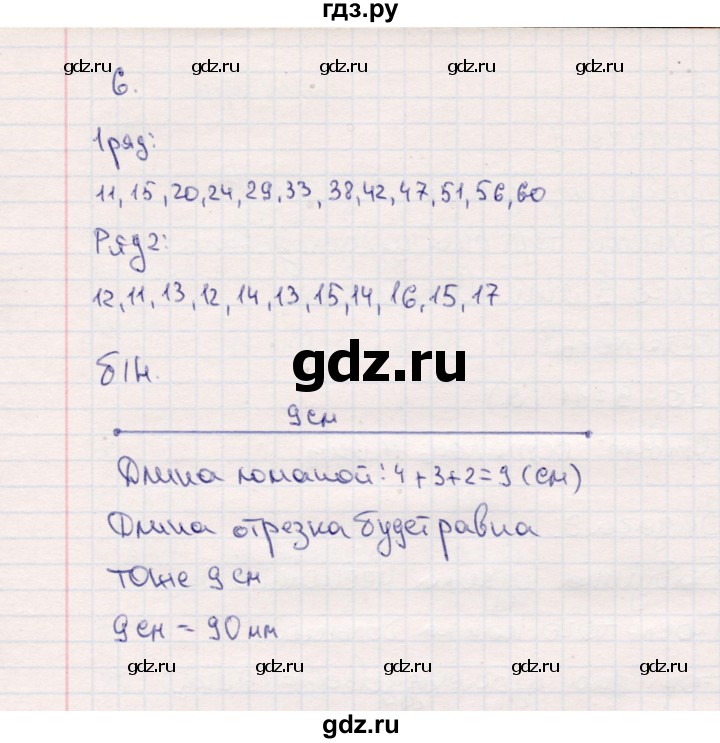 гдз.ру
gdz.ru gdz.ru gdz.ru gdz.ru gdz.ru
6.
1 ряд:
11, 15, 20, 24, 29, 33, 38, 42, 47, 51, 56, 60
Ряд 2:
12, 11, 13, 12, 14, 13, 15, 14, 16, 15, 17
gdz.ru
б/н.
9 см
Длина ломаной: 4 + 3 + 2 = 9 (см)
Длина отрезка будет равна
тоже 9 см
9 см = 90 мм
gdz.ru gdz.ru gdz.ru gdz.ru
gdz.ru